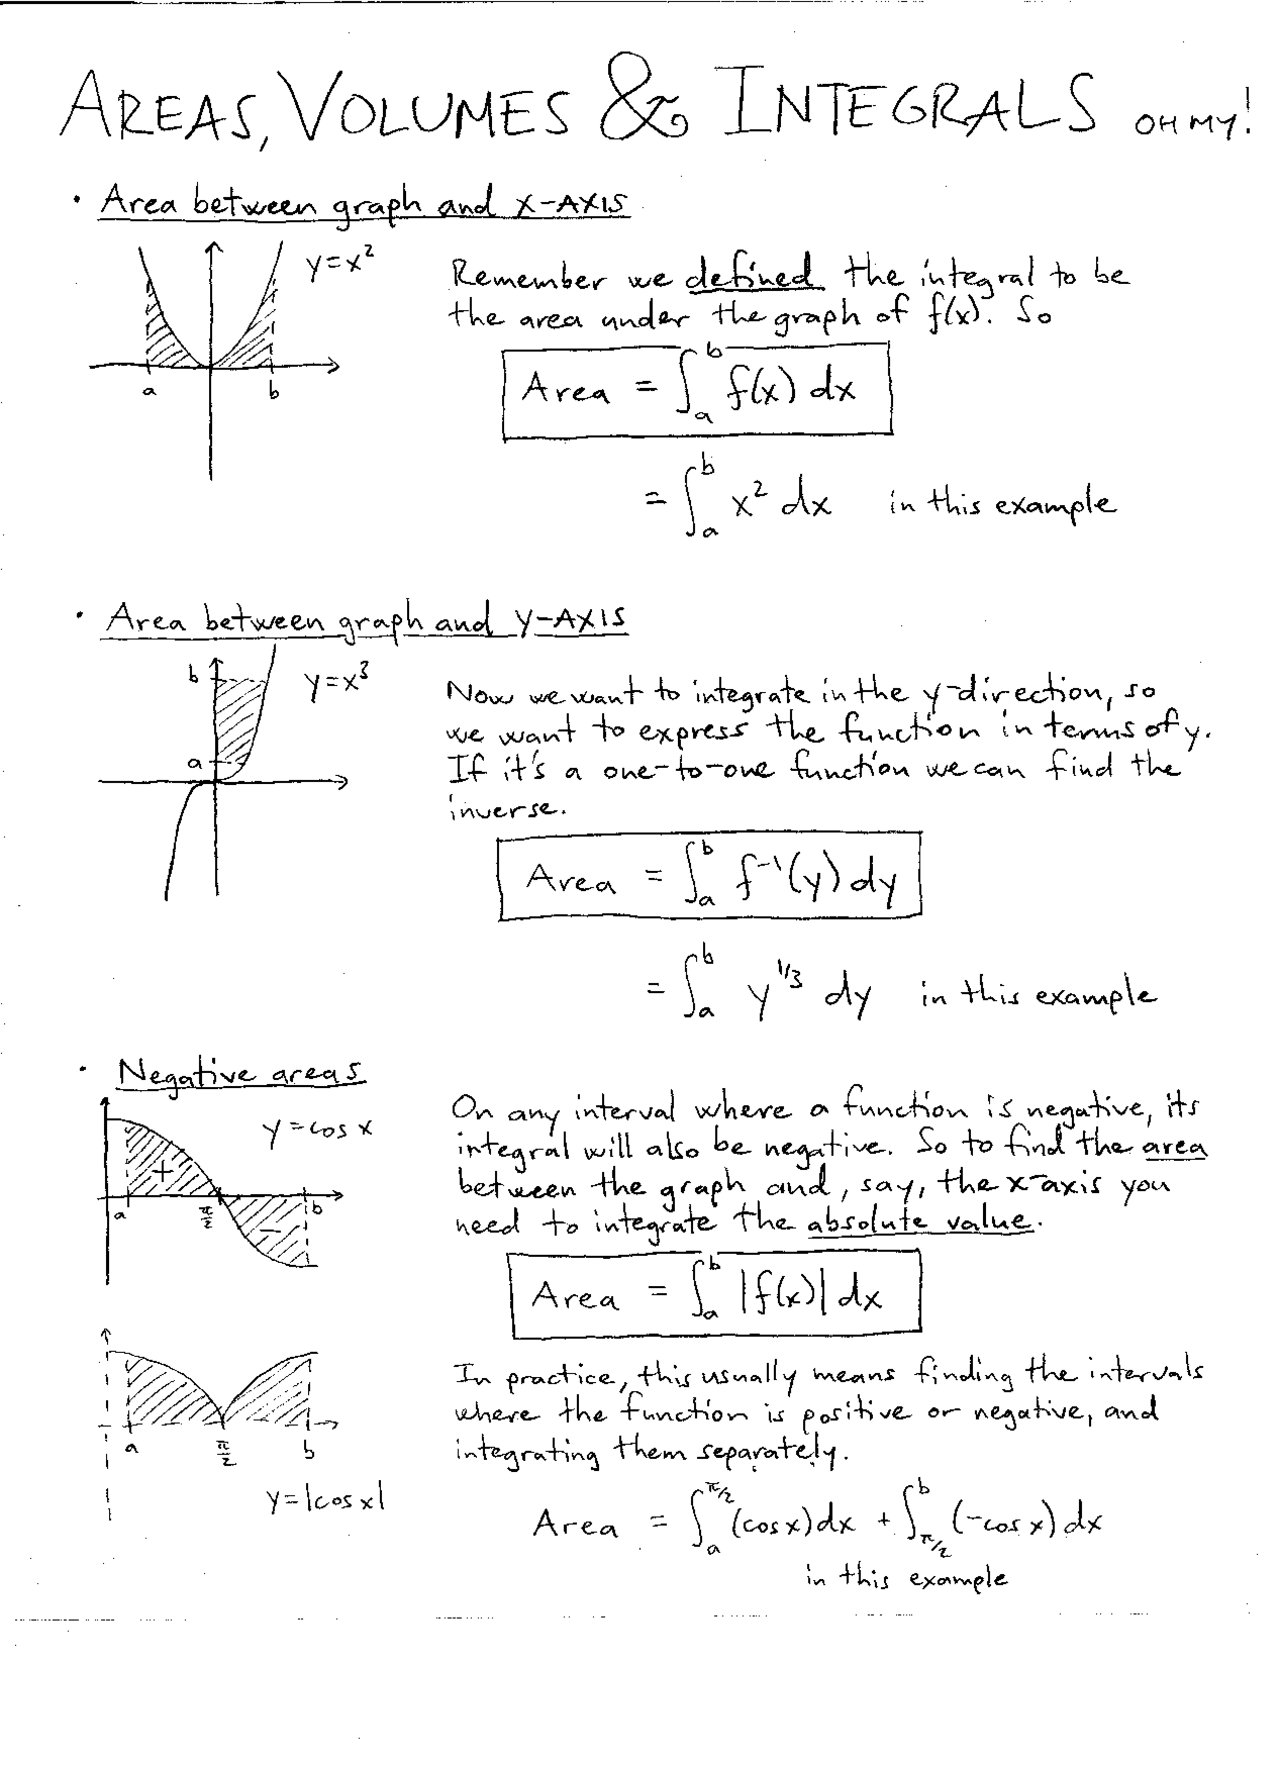 AREAS, VOLUMES & INTEGRALS OH MY!
· Area between graph and X-AXIS
y=x²
Remember we defined the integral to be
the area under the graph of f(x). So
Area = ∫_a^b f(x) dx
a b
= ∫_a^b x² dx in this example
· Area between graph and Y-AXIS
b
y=x³
a
Now we want to integrate in the y-direction, so
we want to express the function in terms of y.
If it's a one-to-one function we can find the
inverse.
Area = ∫_a^b f⁻¹(y) dy
= ∫_a^b y^{1/3} dy in this example
· Negative areas
y=cos x
+
a π/2 b
−
On any interval where a function is negative, its
integral will also be negative. So to find the area
between the graph and, say, the x-axis you
need to integrate the absolute value.
Area = ∫_a^b |f(x)| dx
a π/2 b
y=|cos x|
In practice, this usually means finding the intervals
where the function is positive or negative, and
integrating them separately.
Area = ∫_a^{π/2} (cos x) dx + ∫_{π/2}^b (-cos x) dx
in this example